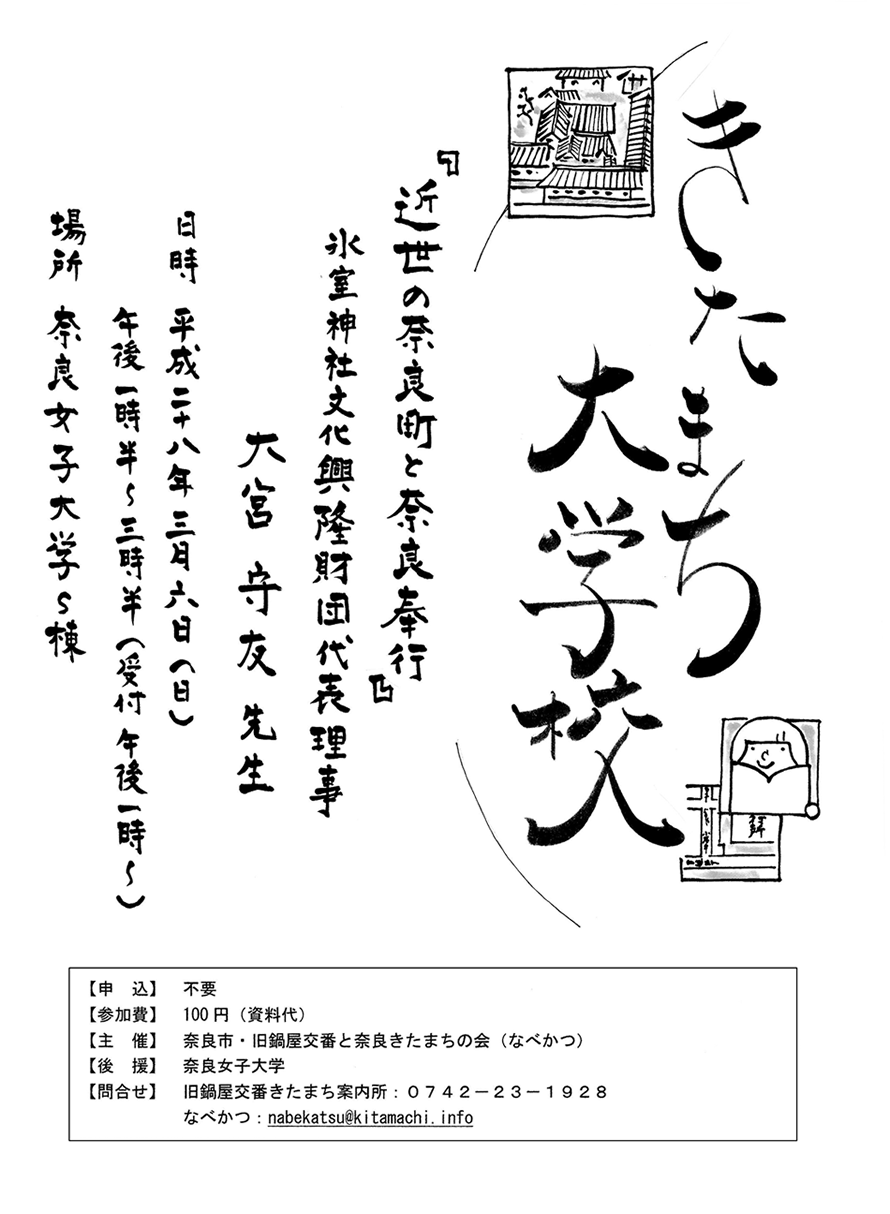 きたまち
大学校
『近世の奈良町と奈良奉行』
氷室神社文化興隆財団代表理事
大宮 守友 先生
日時 平成二十八年三月六日(日)
午後一時半〜三時半(受付 午後一時〜)
場所 奈良女子大学S棟
【申 込】 不要
【参加費】 100円(資料代)
【主 催】 奈良市・旧鍋屋交番と奈良きたまちの会(なべかつ)
【後 援】 奈良女子大学
【問合せ】 旧鍋屋交番きたまち案内所:0742-23-1928
なべかつ:nabekatsu@kitamachi.info